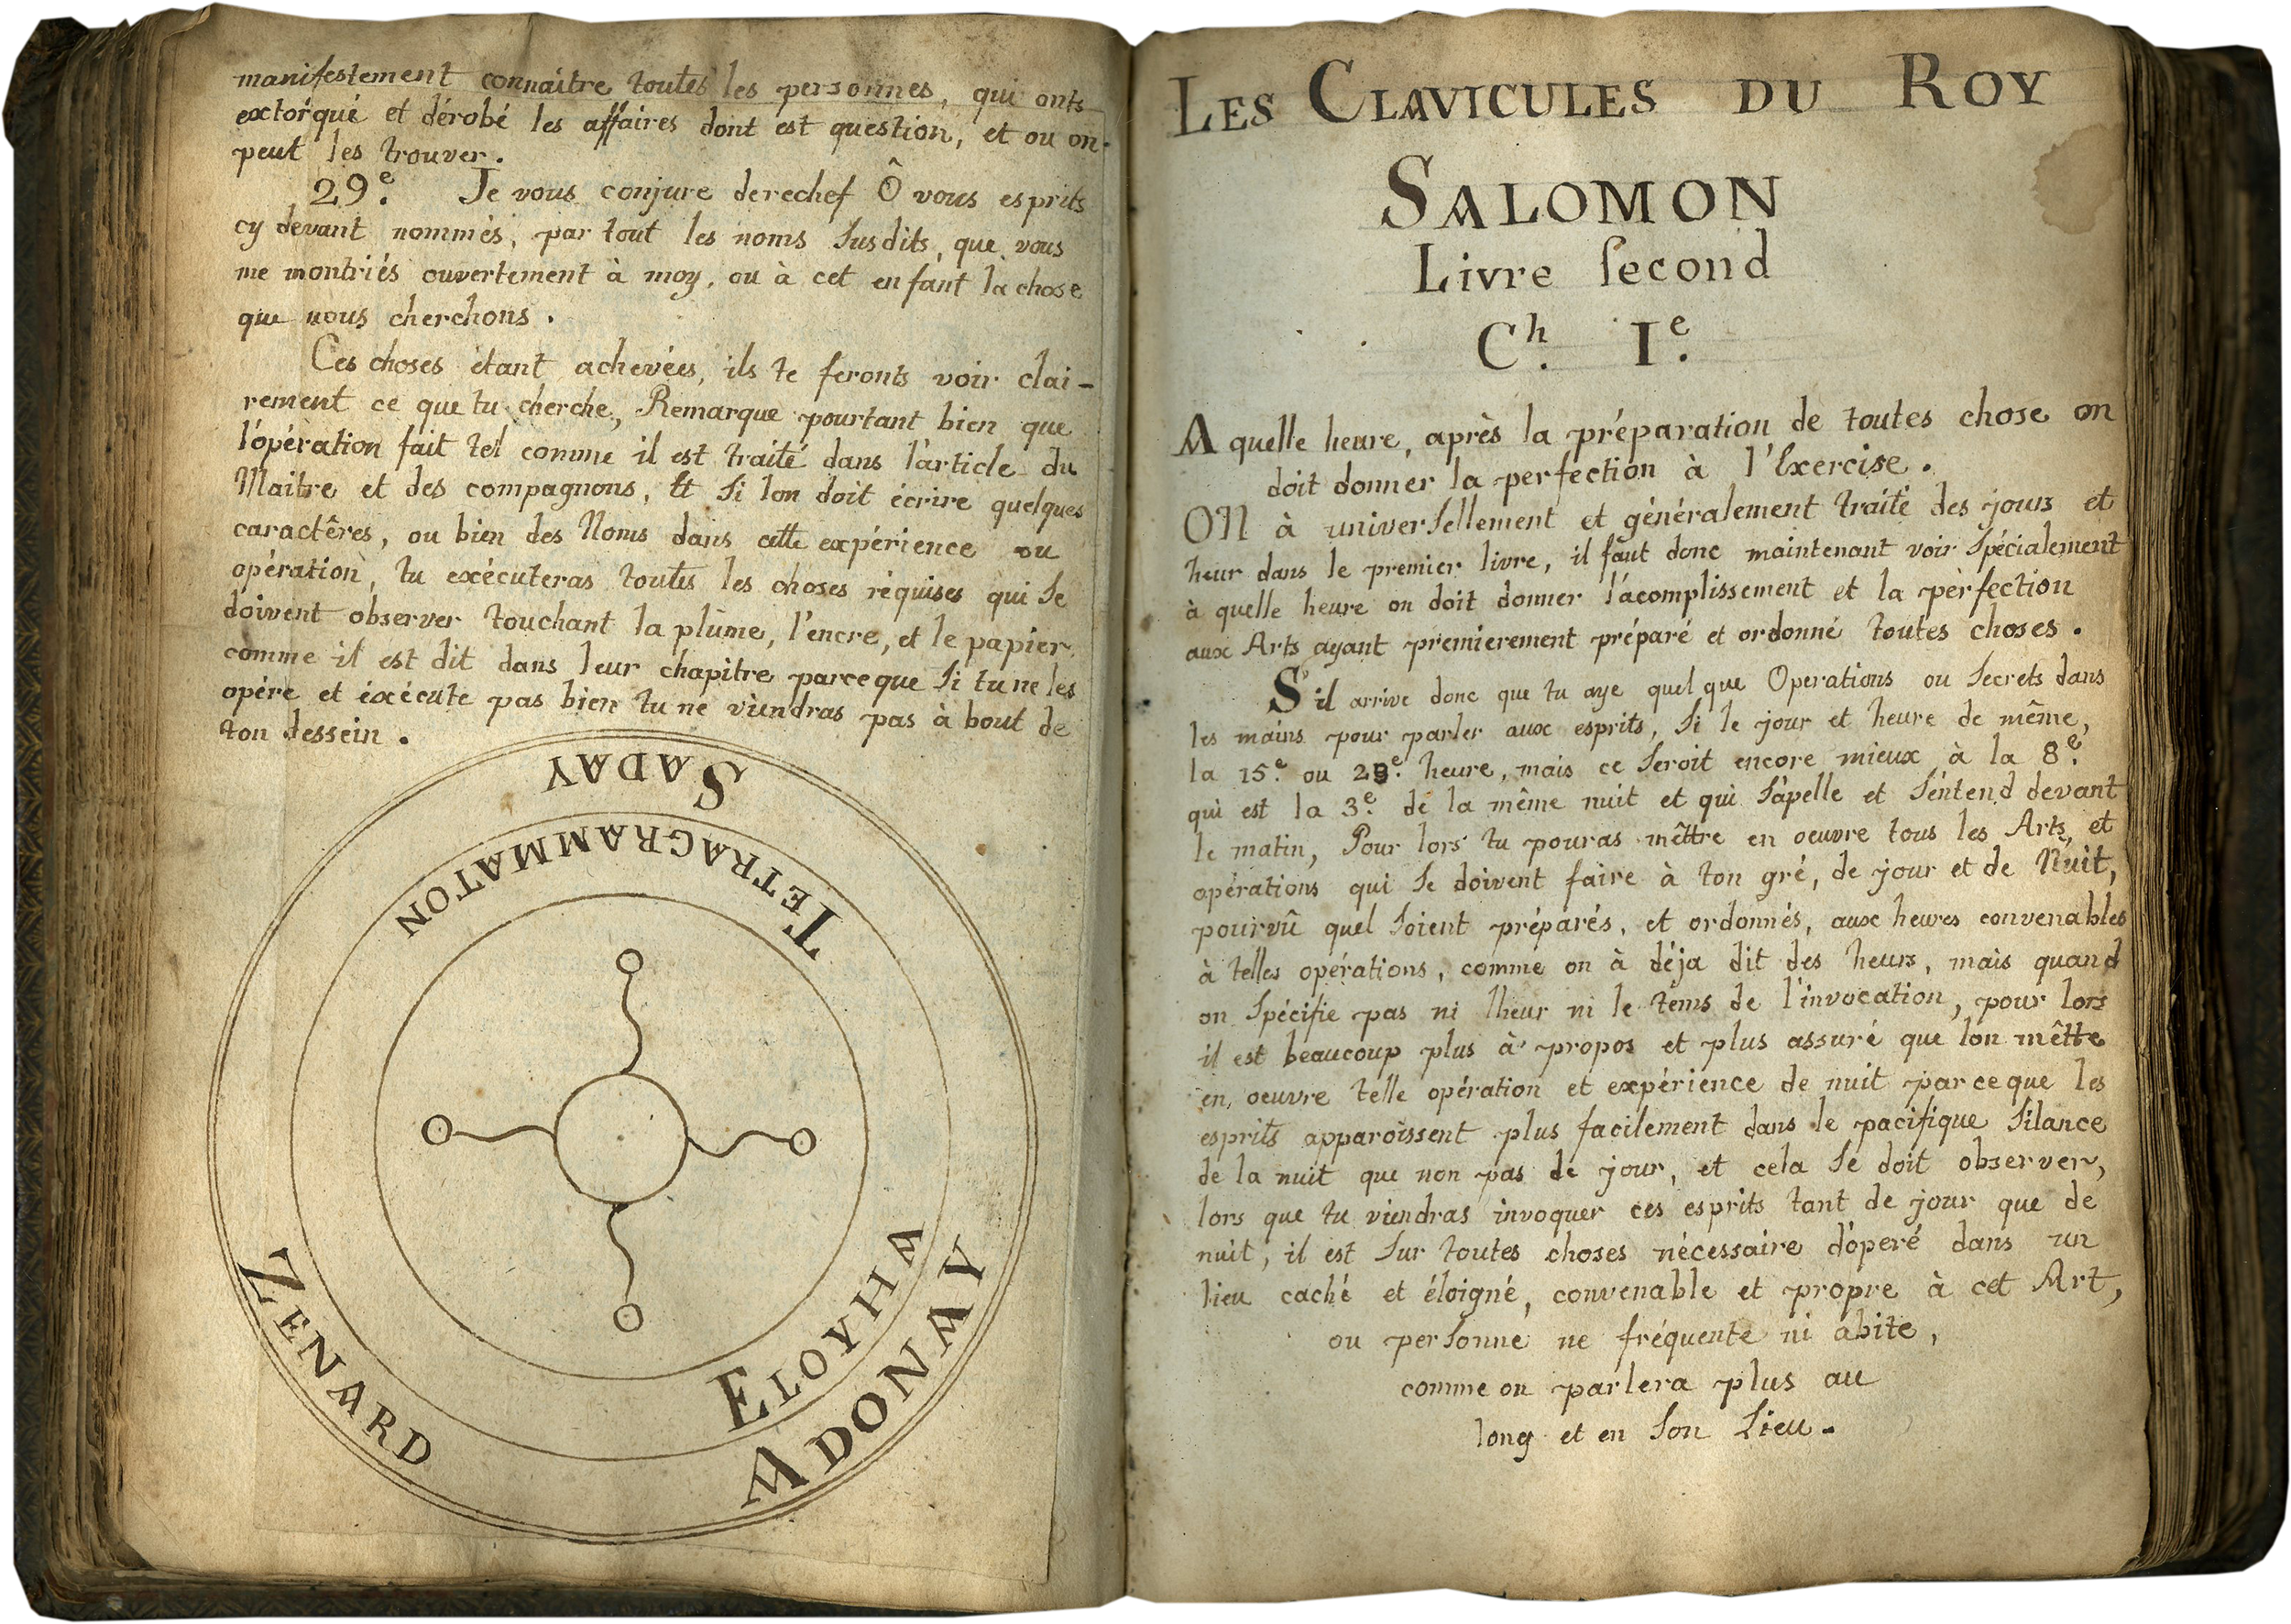 manifestement connaître toutes les personnes, qui onts
extorqué et dérobé les affaires dont est question, et ou on
peut les trouver.
29.e Je vous conjure derechef Ô vous esprits
cy devant nommés, par tout les noms susdits, que vous
me montriés ouvertement à moy, ou à cet enfant la chose
que nous cherchons.
Ces choses étant achevées, ils te feronts voir clai-
rement ce que tu cherche, Remarque pourtant bien que
l'opération fait tel comme il est traité dans l'article du
Maitre et des compagnons, Et si lon doit écrire quelques
caractêres, ou bien des Noms dans cette expérience ou
opération, tu exécuteras toutes les choses réquises qui se
doivent observer touchant la plume, l'encre, et le papier
comme il est dit dans leur chapitre parceque si tu ne les
opére et éxécute pas bien tu ne viendras pas à bout de
ton dessein.
SADAY
TETRAGRAMMATON
ZENARD
ELOYHA
ADONAY
LES CLAVICULES DU ROY
SALOMON
Livre second
Ch. I.e
A quelle heure, après la préparation de toutes chose on
doit donner la perfection à l'Exercise.
ON à universellement et généralement traité des jours et
heur dans le premier livre, il faut donc maintenant voir spécialement
à quelle heure on doit donner l'acomplissement et la pèrfection
aux Arts ayant premierement préparé et ordonné toutes choses.
S'il arrive donc que tu aye quelque Operations ou secrets dans
les mains pour parler aux esprits, si le jour et heure de même,
la 15.e ou 29.e heure, mais ce seroit encore mieux à la 8.e
qui est la 3.e de la même nuit et qui s'apelle et s'entend devant
le matin, Pour lors tu pouras mêttre en oeuvre tous les Arts, et
opérations qui se doivent faire à ton gré, de jour et de Nuit,
pourvû quel soient préparés, et ordonnés, aux heures convenables
à telles opérations, comme on à déja dit des heurs, mais quand
on spécifie pas ni lheur ni le tems de l'invocation, pour lors
il est beaucoup plus à propos et plus assuré que lon mêtte
en oeuvre telle opération et expérience de nuit parceque les
esprits apparoissent plus facilement dans le pacifique silance
de la nuit que non pas de jour, et cela se doit observer,
lors que tu viendras invoquer ces esprits tant de jour que de
nuit, il est sur toutes choses nécessaire d'operé dans un
lieu caché et éloigné, convenable et propre à cet Art,
ou personne ne fréquente ni abite,
comme on parlera plus au
long et en son Lieu.